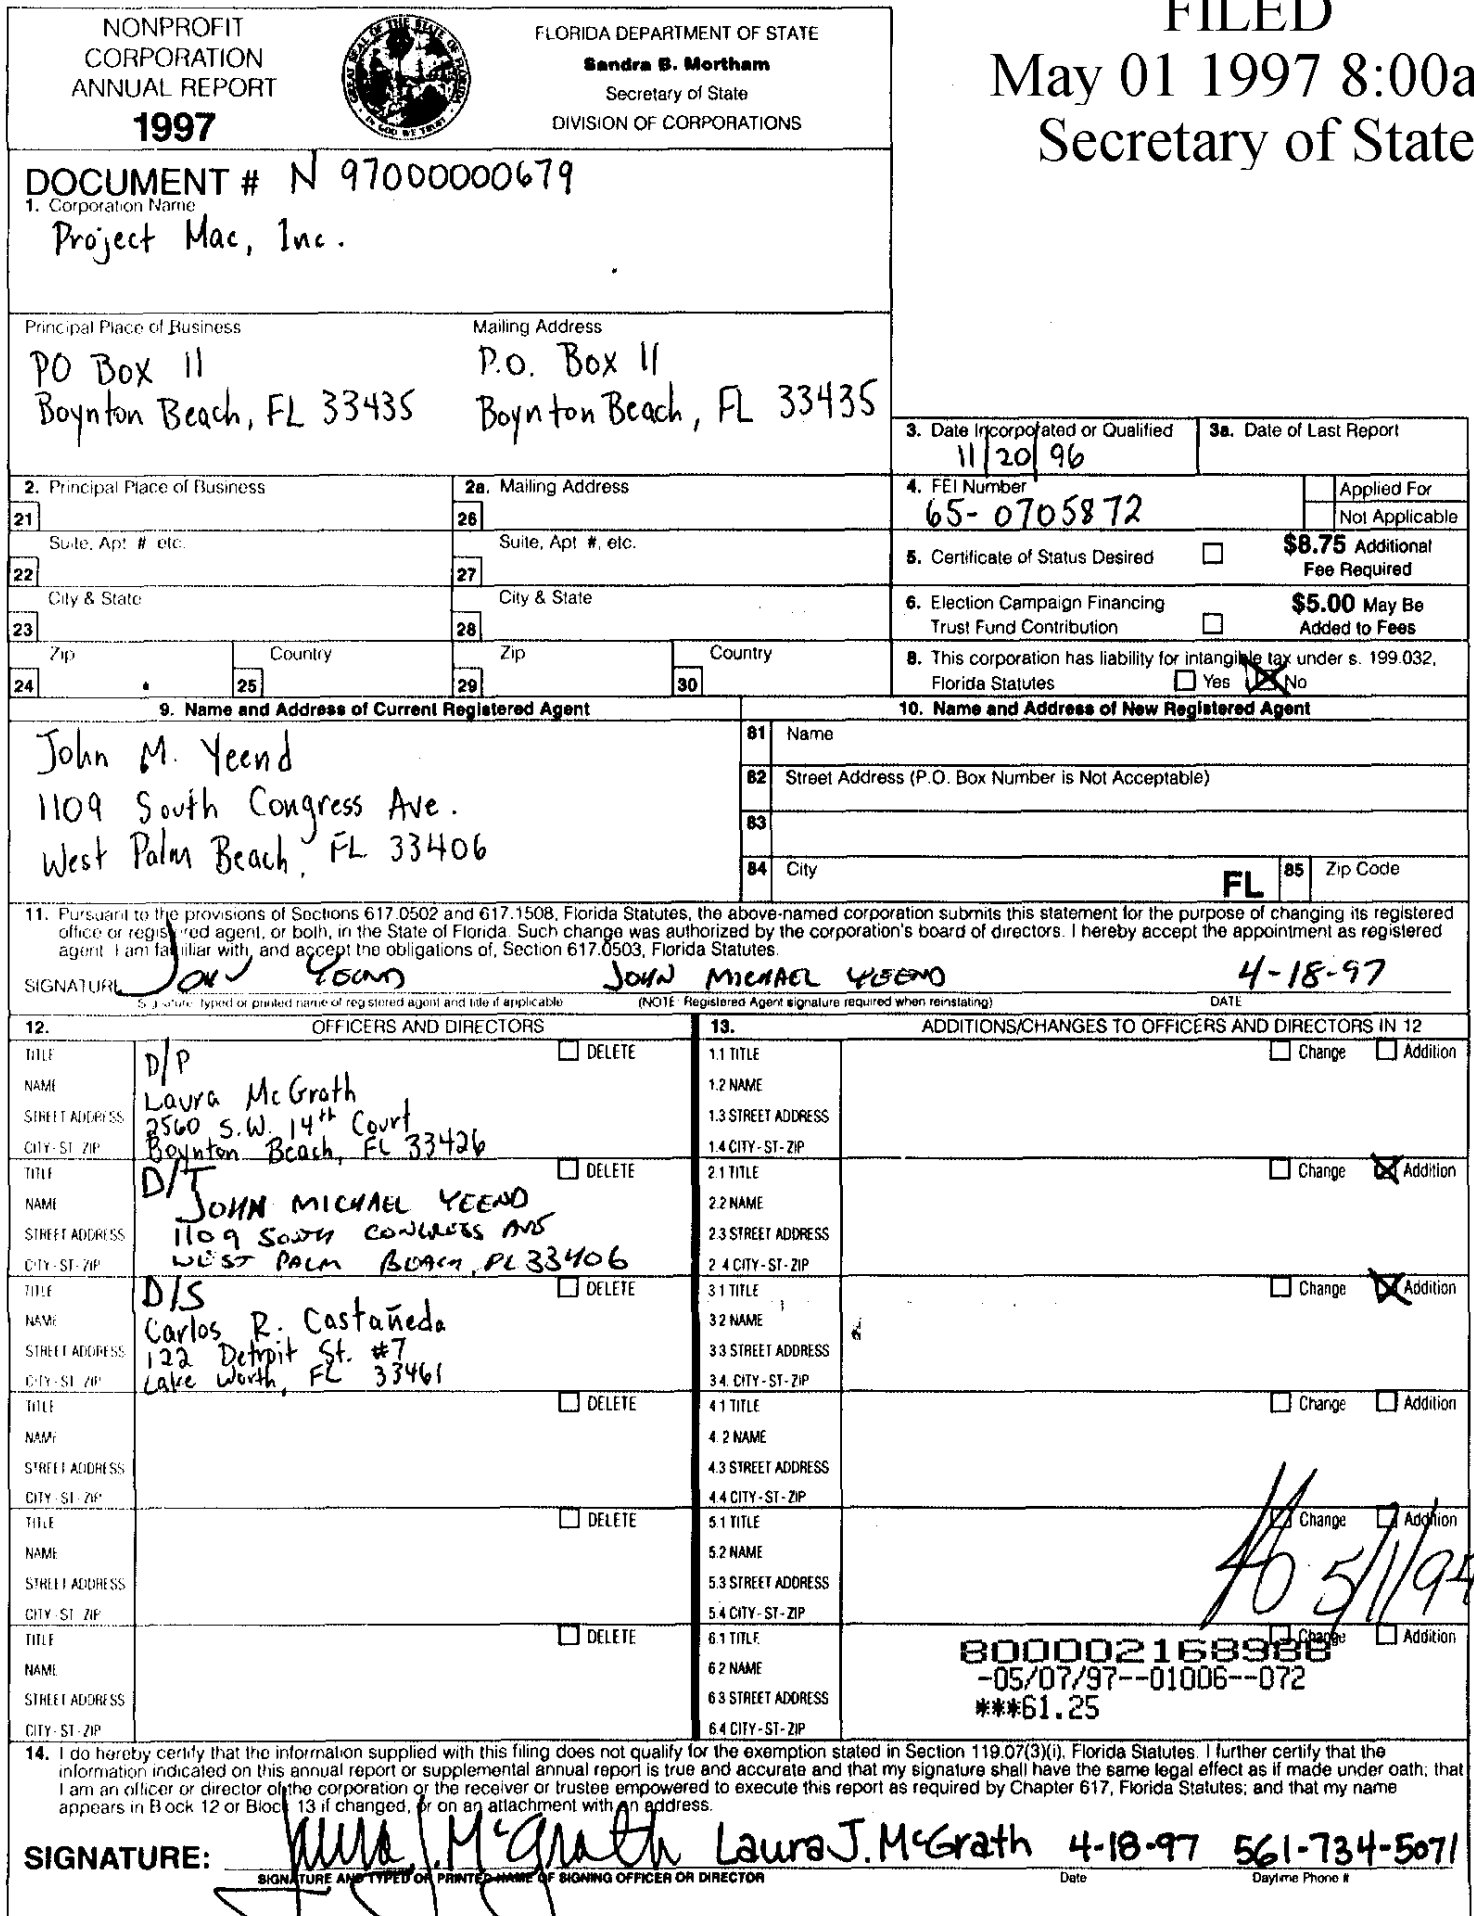 NONPROFIT
CORPORATION
ANNUAL REPORT
1997
FLORIDA DEPARTMENT OF STATE
Sandra B. Mortham
Secretary of State
DIVISION OF CORPORATIONS
FILED
May 01 1997 8:00a
Secretary of State
DOCUMENT # N 97000000679
1. Corporation Name
Project Mac, Inc.
Principal Place of Business
PO Box 11
Boynton Beach, FL 33435
Mailing Address
P.O. Box 11
Boynton Beach, FL 33435
3. Date Incorporated or Qualified
11/20/96
3a. Date of Last Report
2. Principal Place of Business
21
2a. Mailing Address
26
4. FEI Number
65-0705872
Applied For
Not Applicable
Suite, Apt # etc.
22
Suite, Apt #, etc.
27
5. Certificate of Status Desired
$8.75 Additional
Fee Required
City & State
23
City & State
28
6. Election Campaign Financing
Trust Fund Contribution
$5.00 May Be
Added to Fees
Zip
24
Country
25
Zip
29
Country
30
8. This corporation has liability for intangible tax under s. 199.032,
Florida Statutes Yes No
9. Name and Address of Current Registered Agent
John M. Yeend
1109 South Congress Ave.
West Palm Beach, FL 33406
10. Name and Address of New Registered Agent
81 Name
82 Street Address (P.O. Box Number is Not Acceptable)
83
84 City
FL
85 Zip Code
11. Pursuant to the provisions of Sections 617.0502 and 617.1508, Florida Statutes, the above-named corporation submits this statement for the purpose of changing its registered
office or registered agent, or both, in the State of Florida. Such change was authorized by the corporation's board of directors. I hereby accept the appointment as registered
agent I am familiar with, and accept the obligations of, Section 617.0503, Florida Statutes.
SIGNATURE John Yeend JOHN MICHAEL YEEND 4-18-97
Signature, typed or printed name of registered agent and title if applicable (NOTE: Registered Agent signature required when reinstating) DATE
12. OFFICERS AND DIRECTORS
13. ADDITIONS/CHANGES TO OFFICERS AND DIRECTORS IN 12
TITLE D/P DELETE
NAME Laura McGrath
STREET ADDRESS 2560 S.W. 14th Court
CITY-ST-ZIP Boynton Beach, FL 33426
1.1 TITLE Change Addition
1.2 NAME
1.3 STREET ADDRESS
1.4 CITY-ST-ZIP
TITLE D/T DELETE
NAME JOHN MICHAEL YEEND
STREET ADDRESS 1109 SOUTH CONGRESS AVE
CITY-ST-ZIP WEST PALM BEACH, FL 33406
2.1 TITLE Change Addition
2.2 NAME
2.3 STREET ADDRESS
2 4 CITY-ST-ZIP
TITLE D/S DELETE
NAME Carlos R. Castañeda
STREET ADDRESS 122 Detroit St. #7
CITY-ST-ZIP Lake Worth, FL 33461
3 1 TITLE Change Addition
3 2 NAME
3 3 STREET ADDRESS
3 4. CITY-ST-ZIP
TITLE DELETE
NAME
STREET ADDRESS
CITY-ST-ZIP
4 1 TITLE Change Addition
4. 2 NAME
4.3 STREET ADDRESS
4.4 CITY-ST-ZIP
TITLE DELETE
NAME
STREET ADDRESS
CITY-ST-ZIP
5.1 TITLE Change Addition
5.2 NAME
5.3 STREET ADDRESS
5.4 CITY-ST-ZIP
TITLE DELETE
NAME
STREET ADDRESS
CITY-ST-ZIP
6.1 TITLE Change Addition
6 2 NAME
6 3 STREET ADDRESS
6.4 CITY-ST-ZIP
800002168988
-05/07/97--01006--072
***61.25
14. I do hereby certify that the information supplied with this filing does not qualify for the exemption stated in Section 119.07(3)(i), Florida Statutes. I further certify that the
information indicated on this annual report or supplemental annual report is true and accurate and that my signature shall have the same legal effect as if made under oath; that
I am an officer or director of the corporation or the receiver or trustee empowered to execute this report as required by Chapter 617, Florida Statutes; and that my name
appears in Block 12 or Block 13 if changed, or on an attachment with an address.
SIGNATURE: Laura J. McGrath Laura J. McGrath 4-18-97 561-734-5071
SIGNATURE AND TYPED OR PRINTED NAME OF SIGNING OFFICER OR DIRECTOR Date Daytime Phone #